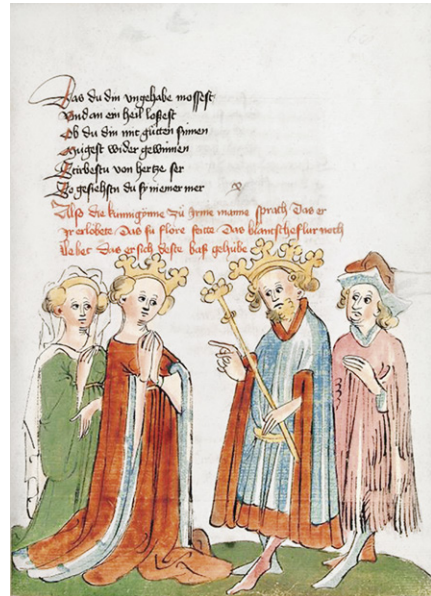 Das du din vngehabe mossest
Vnd an ein heil lossest
Ob du din mit gůtten sinnen
Mugest wider gewinnen
Stirbestu von hertze ser
So gesiehstu du su niemer mer
Also die kunnigonne zů irme manne sprach Das er
ir erlobete Das su flore seitte Das blantscheflur noch
lebet Das er sich deste bas gehube